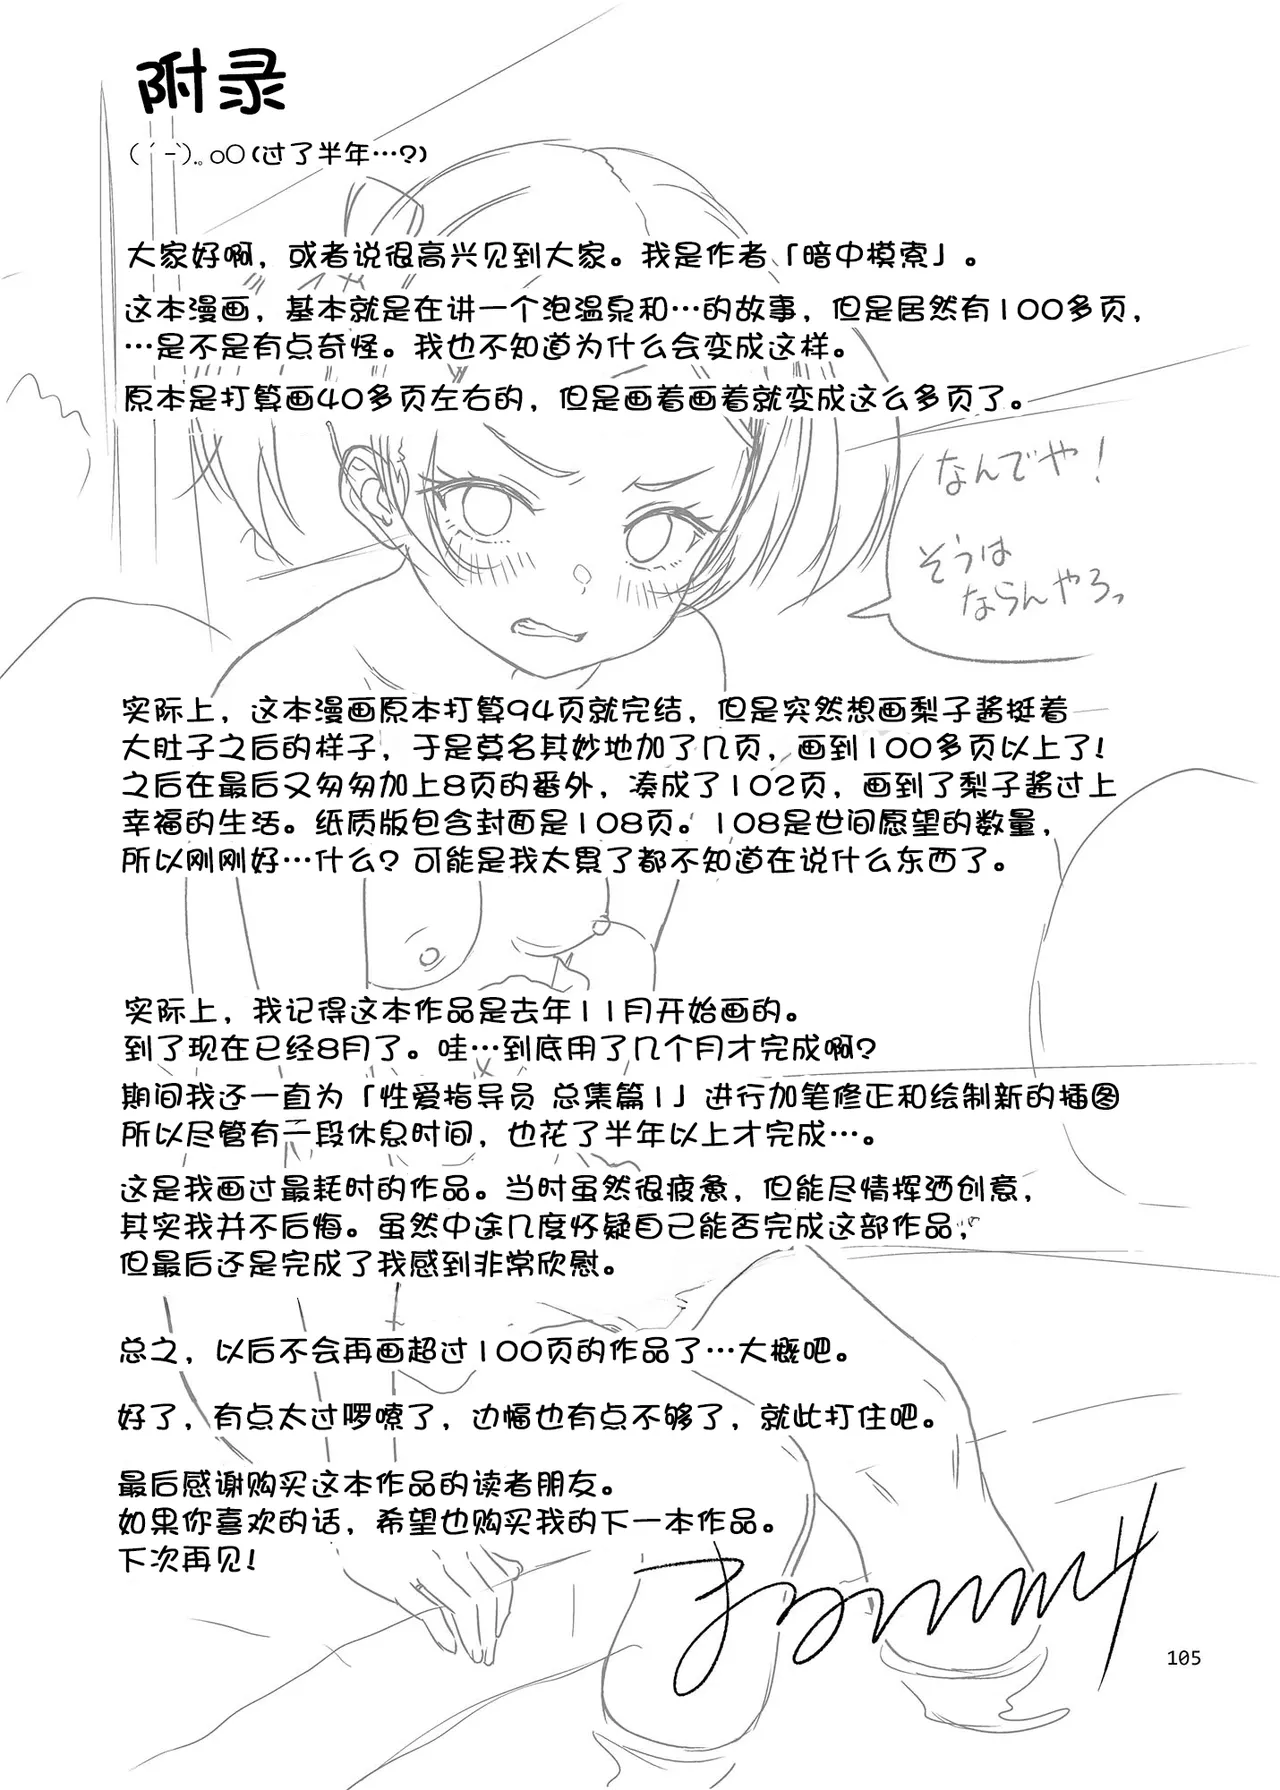 附录
( ´-`).｡oO(过了半年…?)
大家好啊，或者说很高兴见到大家。我是作者「暗中模索」。
这本漫画，基本就是在讲一个泡温泉和…的故事，但是居然有100多页，
…是不是有点奇怪。我也不知道为什么会变成这样。
原本是打算画40多页左右的，但是画着画着就变成这么多页了。
なんでや！
そうは
ならんやろっ
实际上，这本漫画原本打算94页就完结，但是突然想画梨子酱挺着
大肚子之后的样子，于是莫名其妙地加了几页，画到100多页以上了!
之后在最后又匆匆加上8页的番外，凑成了102页，画到了梨子酱过上
幸福的生活。纸质版包含封面是108页。108是世间愿望的数量，
所以刚刚好…什么? 可能是我太累了都不知道在说什么东西了。
实际上，我记得这本作品是去年11月开始画的。
到了现在已经8月了。哇…到底用了几个月才完成啊?
期间我还一直为「性爱指导员 总集篇1」进行加笔修正和绘制新的插图
所以尽管有一段休息时间，也花了半年以上才完成…。
这是我画过最耗时的作品。当时虽然很疲惫，但能尽情挥洒创意，
其实我并不后悔。虽然中途几度怀疑自己能否完成这部作品，
但最后还是完成了我感到非常欣慰。
总之，以后不会再画超过100页的作品了…大概吧。
好了，有点太过啰嗦了，边幅也有点不够了，就此打住吧。
最后感谢购买这本作品的读者朋友。
如果你喜欢的话，希望也购买我的下一本作品。
下次再见!
105